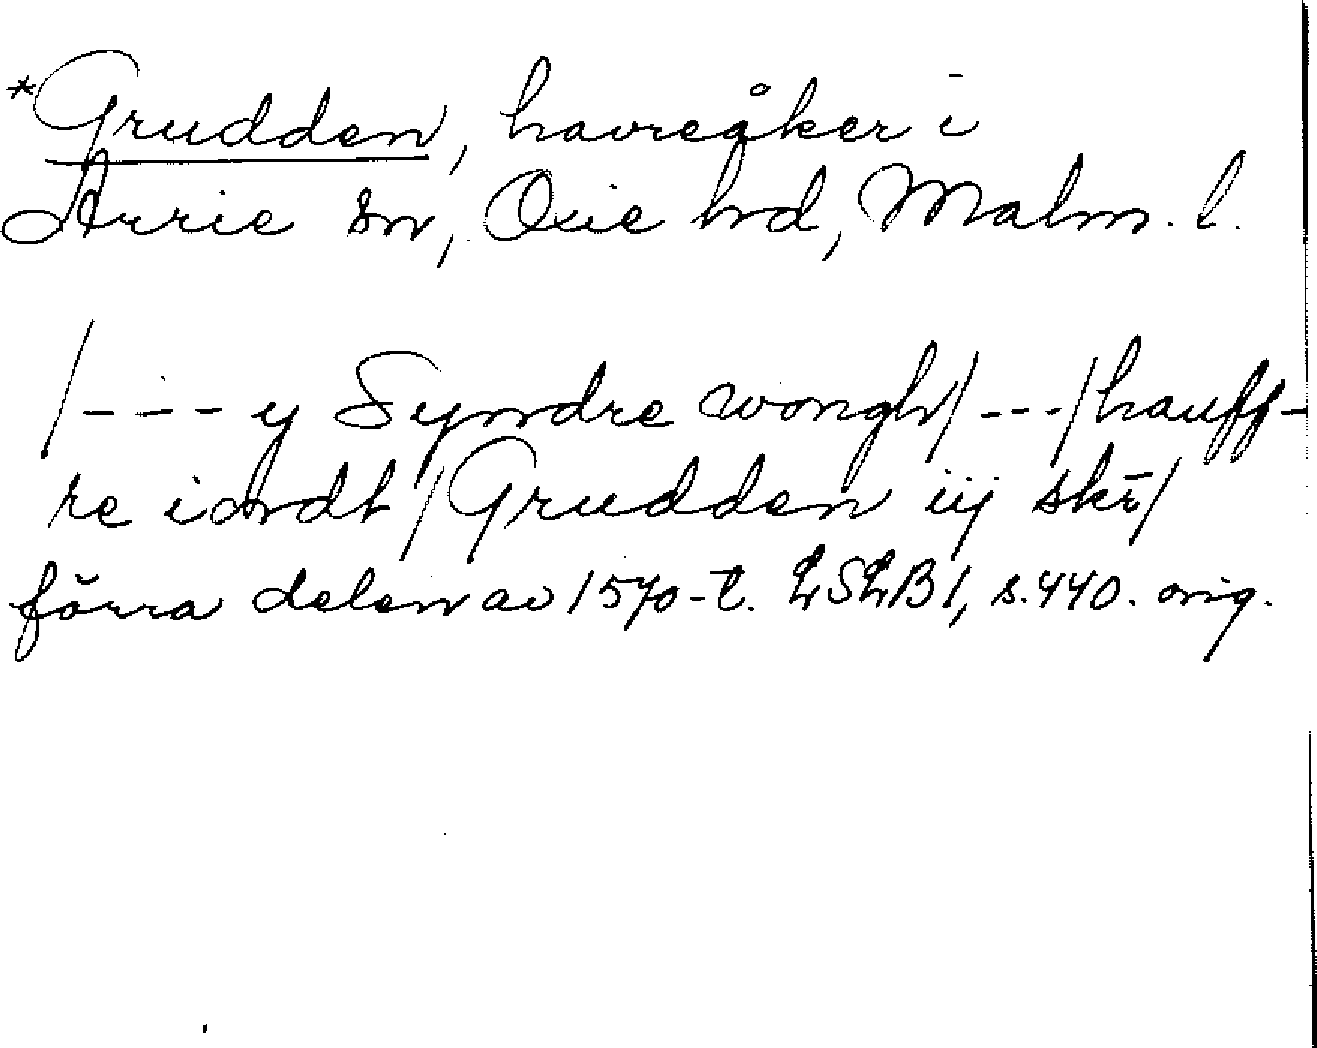 *Grudden, havreåker i
Arrie sn, Oxie hd, Malm. l.
/--- y Syndre wongh/---/hauff-
re iordt/Grudden iij skr/
förra delen av 1570-t. LSLB1, s.440. orig.